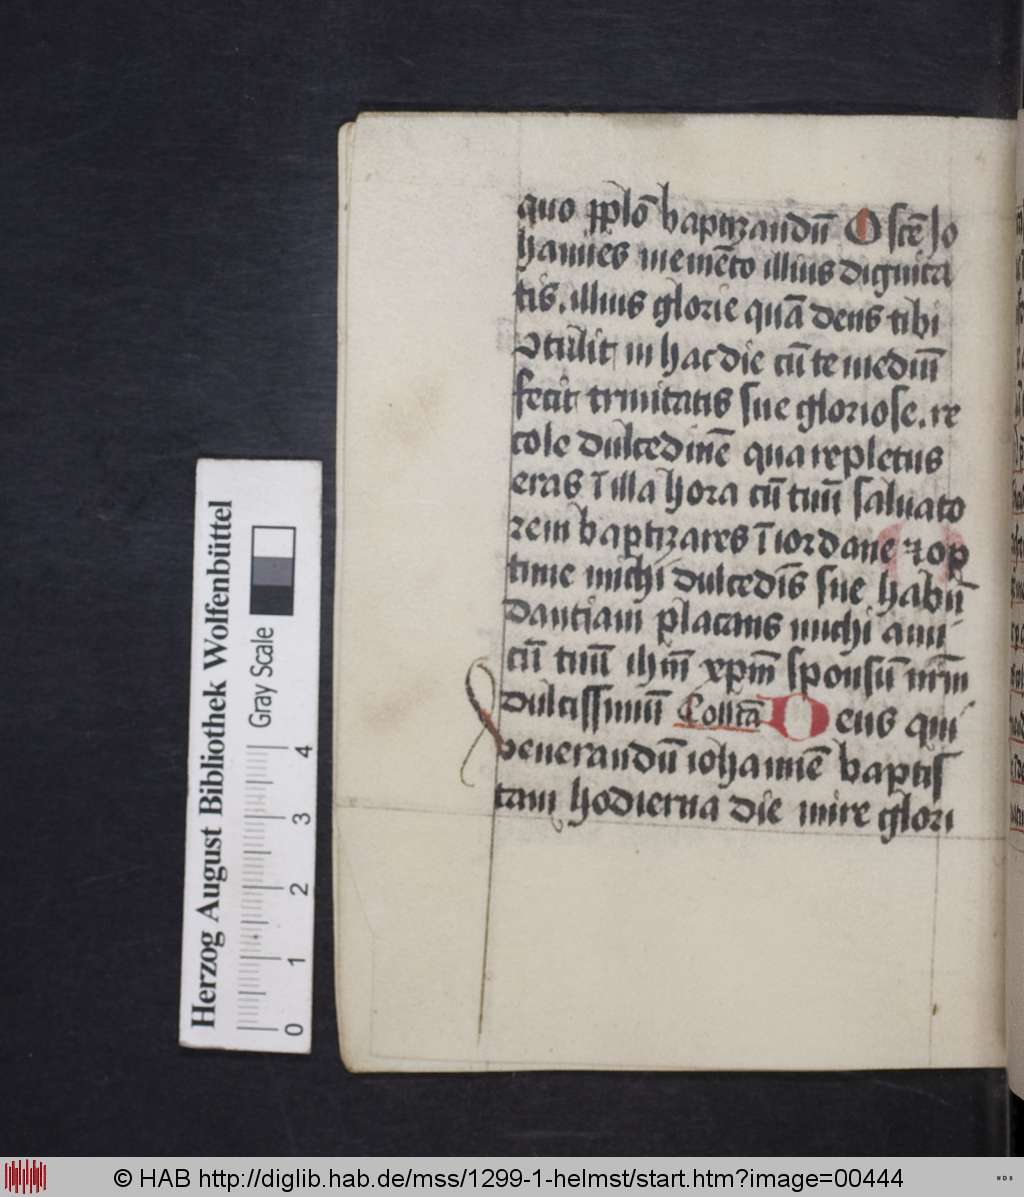 quo pplō baptizandū O scē Jo
hannes memēto illius dignita
tis. illius glorie quā deus tibi
ↄtulit in hac die cū te mediū
fecit trinitatis sue gloriose. re
cole dulcedinē qua repletus
eras ī illa hora cū tuū saluato
rem baptizares ī iordane ⁊ op
tine michi dulcedīs sue habū
dantiam placans michi ami
cū tuū ihm̄ xpm̄ sponsū nr̄m
dulcissimū Collcā Deus qui
venerandū iohannē baptis
tam hodierna die mire glori
Herzog August Bibliothek Wolfenbüttel
Gray Scale
0 1 2 3 4
© HAB http://diglib.hab.de/mss/1299-1-helmst/start.htm?image=00444